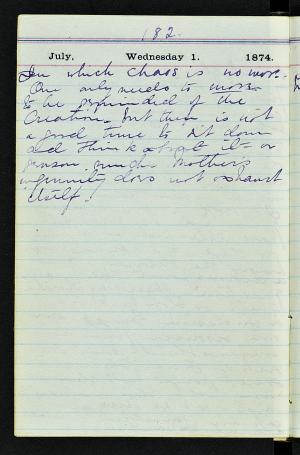 182.
July, Wednesday 1. 1874.
In which chaos is no more.
One only needs to move
to be reminded of the
Creation. But there is not
a good time to sit down
and think it or
reason under Mother's
ingenuity does not exhaust
itself!